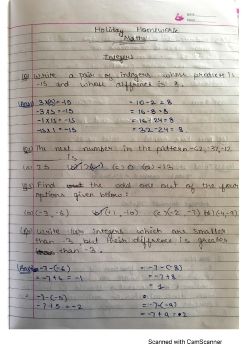 Holiday Homework
Maths
Integers
Q1 Write a pair of integers whose product is
-15 and whose difference is 8.
-3 x 5 = -15
-1 x 15 = -15
-15 x 1 = -15
Q2 The next number in the pattern -62, -37, -12
is
(a) 25 (b) 13 (c) 0 (d) -13
Q3 Find the odd one out of the four
options given below:
(a) (-3, -6) (b) (+1, -10) (c) (-2, -7) (d) (-4, -9)
Q4 Write two integers which are smaller
than -3, but their difference is greater
than -3.
= -7-(-6) = -7-(-8)
= -7+6 = -1 = -7+8
= 1
= -7-(-5)
= -7+5 = -2 = -7-(-9)
= -7+9 = 2
Scanned with CamScanner